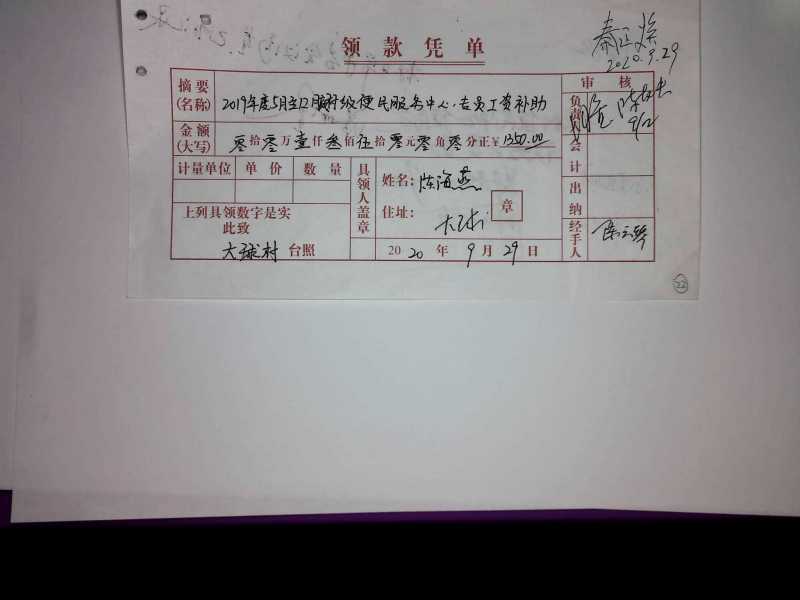 领款凭单
2020.9.29
摘要
(名称)
2019年度5月至12月村级便民服务中心人员工资补助
审核
负责人
9/2
金额
(大写)
零拾零万壹仟叁佰伍拾零元零角零分正¥1350.00
会计
计量单位 单价 数量
具领人盖章
姓名:陈海燕
住址:大球村
章
出纳
上列具领数字是实
此致
大球村台照
2020年9月29日
经手人
22